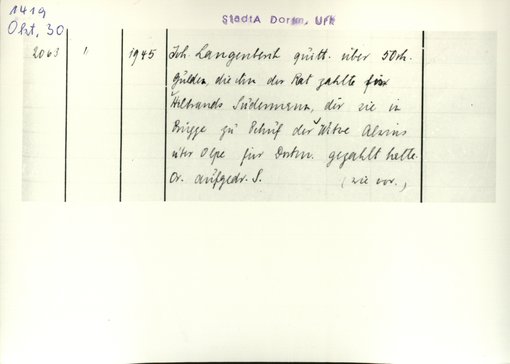 1419
Okt. 30
StadtA Dortm., Urk
2063 1 1945 Joh. Langenbech quitt. über 50 rh.
Gulden, die ihm der Rat zahlte für
Hilbrands Südermann, der sie in
Brügge zu Behuf der Witwe Alwins
über Olpe für Dortm. gezahlt hatte.
Or. aufgedr. S. (wie vor.)